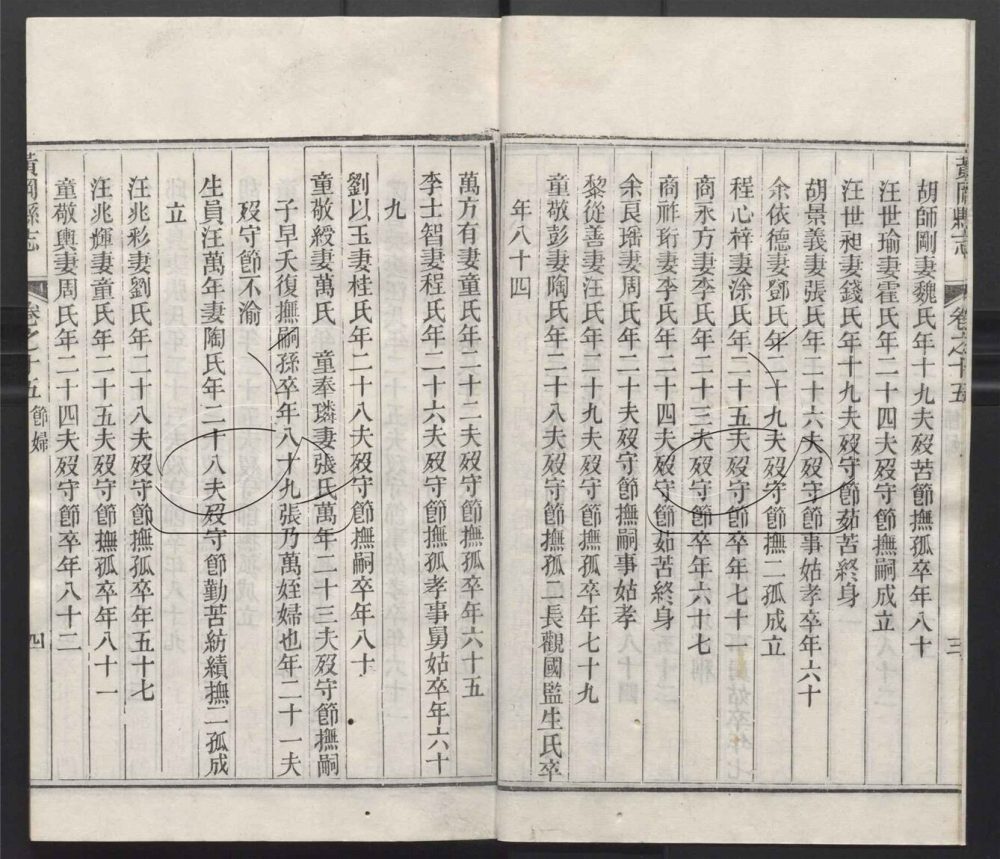 黃岡縣志
卷之十五
三
胡師剛妻魏氏年十九夫歿苦節撫孤卒年八十
汪世瑜妻霍氏年二十四夫歿守節撫嗣成立
汪世昶妻錢氏年十九夫歿守節茹苦終身
胡景義妻張氏年二十六夫歿守節事姑孝卒年六十
余依德妻鄧氏年二十九夫歿守節撫二孤成立
程心梓妻涂氏年二十五夫歿守節卒年七十一
商永方妻李氏年二十三夫歿守節卒年六十七
商祚珩妻李氏年二十四夫歿守節茹苦終身
余良瑎妻周氏年二十夫歿守節撫嗣事姑孝
黎從善妻汪氏年二十九夫歿守節撫孤卒年七十九
童敬彭妻陶氏年二十八夫歿守節撫孤二長觀國監生氏卒
年八十四
萬方有妻童氏年二十二夫歿守節撫孤卒年六十五
李士智妻程氏年二十六夫歿守節撫孤孝事舅姑卒年六十
九
劉以玉妻桂氏年二十八夫歿守節撫嗣卒年八十
童敬綬妻萬氏 童奉璘妻張氏萬年二十三夫歿守節撫嗣
子早夭復撫嗣孫卒年八十九張乃萬姪婦也年二十一夫
歿守節不渝
生員汪萬年妻陶氏年二十八夫歿守節勤苦紡績撫二孤成
立
汪兆彩妻劉氏年二十八夫歿守節撫孤卒年五十七
汪兆輝妻童氏年二十五夫歿守節撫孤卒年八十一
童敬輿妻周氏年二十四夫歿守節撫孤卒年八十二
黃岡縣志
卷之十五
節婦
四